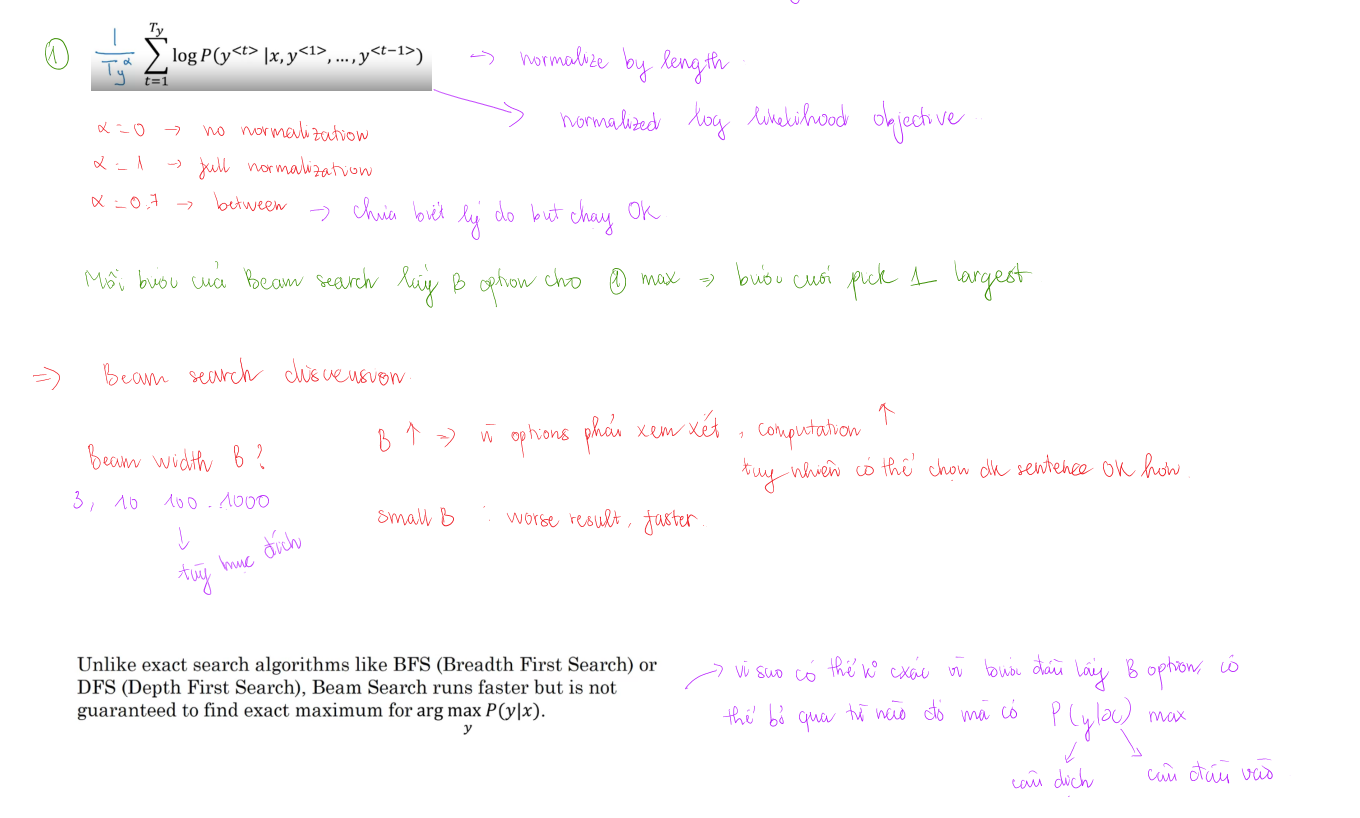 ① 1/Ty^α ∑_{t=1}^{Ty} log P(y<t> |x, y<1>, ..., y<t−1>) → normalize by length
→ normalized log likelihood objective
α = 0 → no normalization
α = 1 → full normalization
α = 0.7 → between → chưa biết lý do but chạy OK
Mỗi bước của Beam search lấy B option cho ① max ⇒ bước cuối pick 1 largest
⇒ Beam search discussion
B ↑ ⇒ options phải xem xét, computation ↑
tuy nhiên có thể chọn đk sentence OK hơn
Beam width B?
3, 10 100. 1000
small B : worse result, faster.
↓
tùy mục đích
Unlike exact search algorithms like BFS (Breadth First Search) or
DFS (Depth First Search), Beam Search runs faster but is not
guaranteed to find exact maximum for arg max P(y|x).
y
→ vì sao có thể k° cxác vì bước đầu lấy B option, có
thể bỏ qua từ nào đó mà có P(y|x) max
câu dịch câu đầu vào